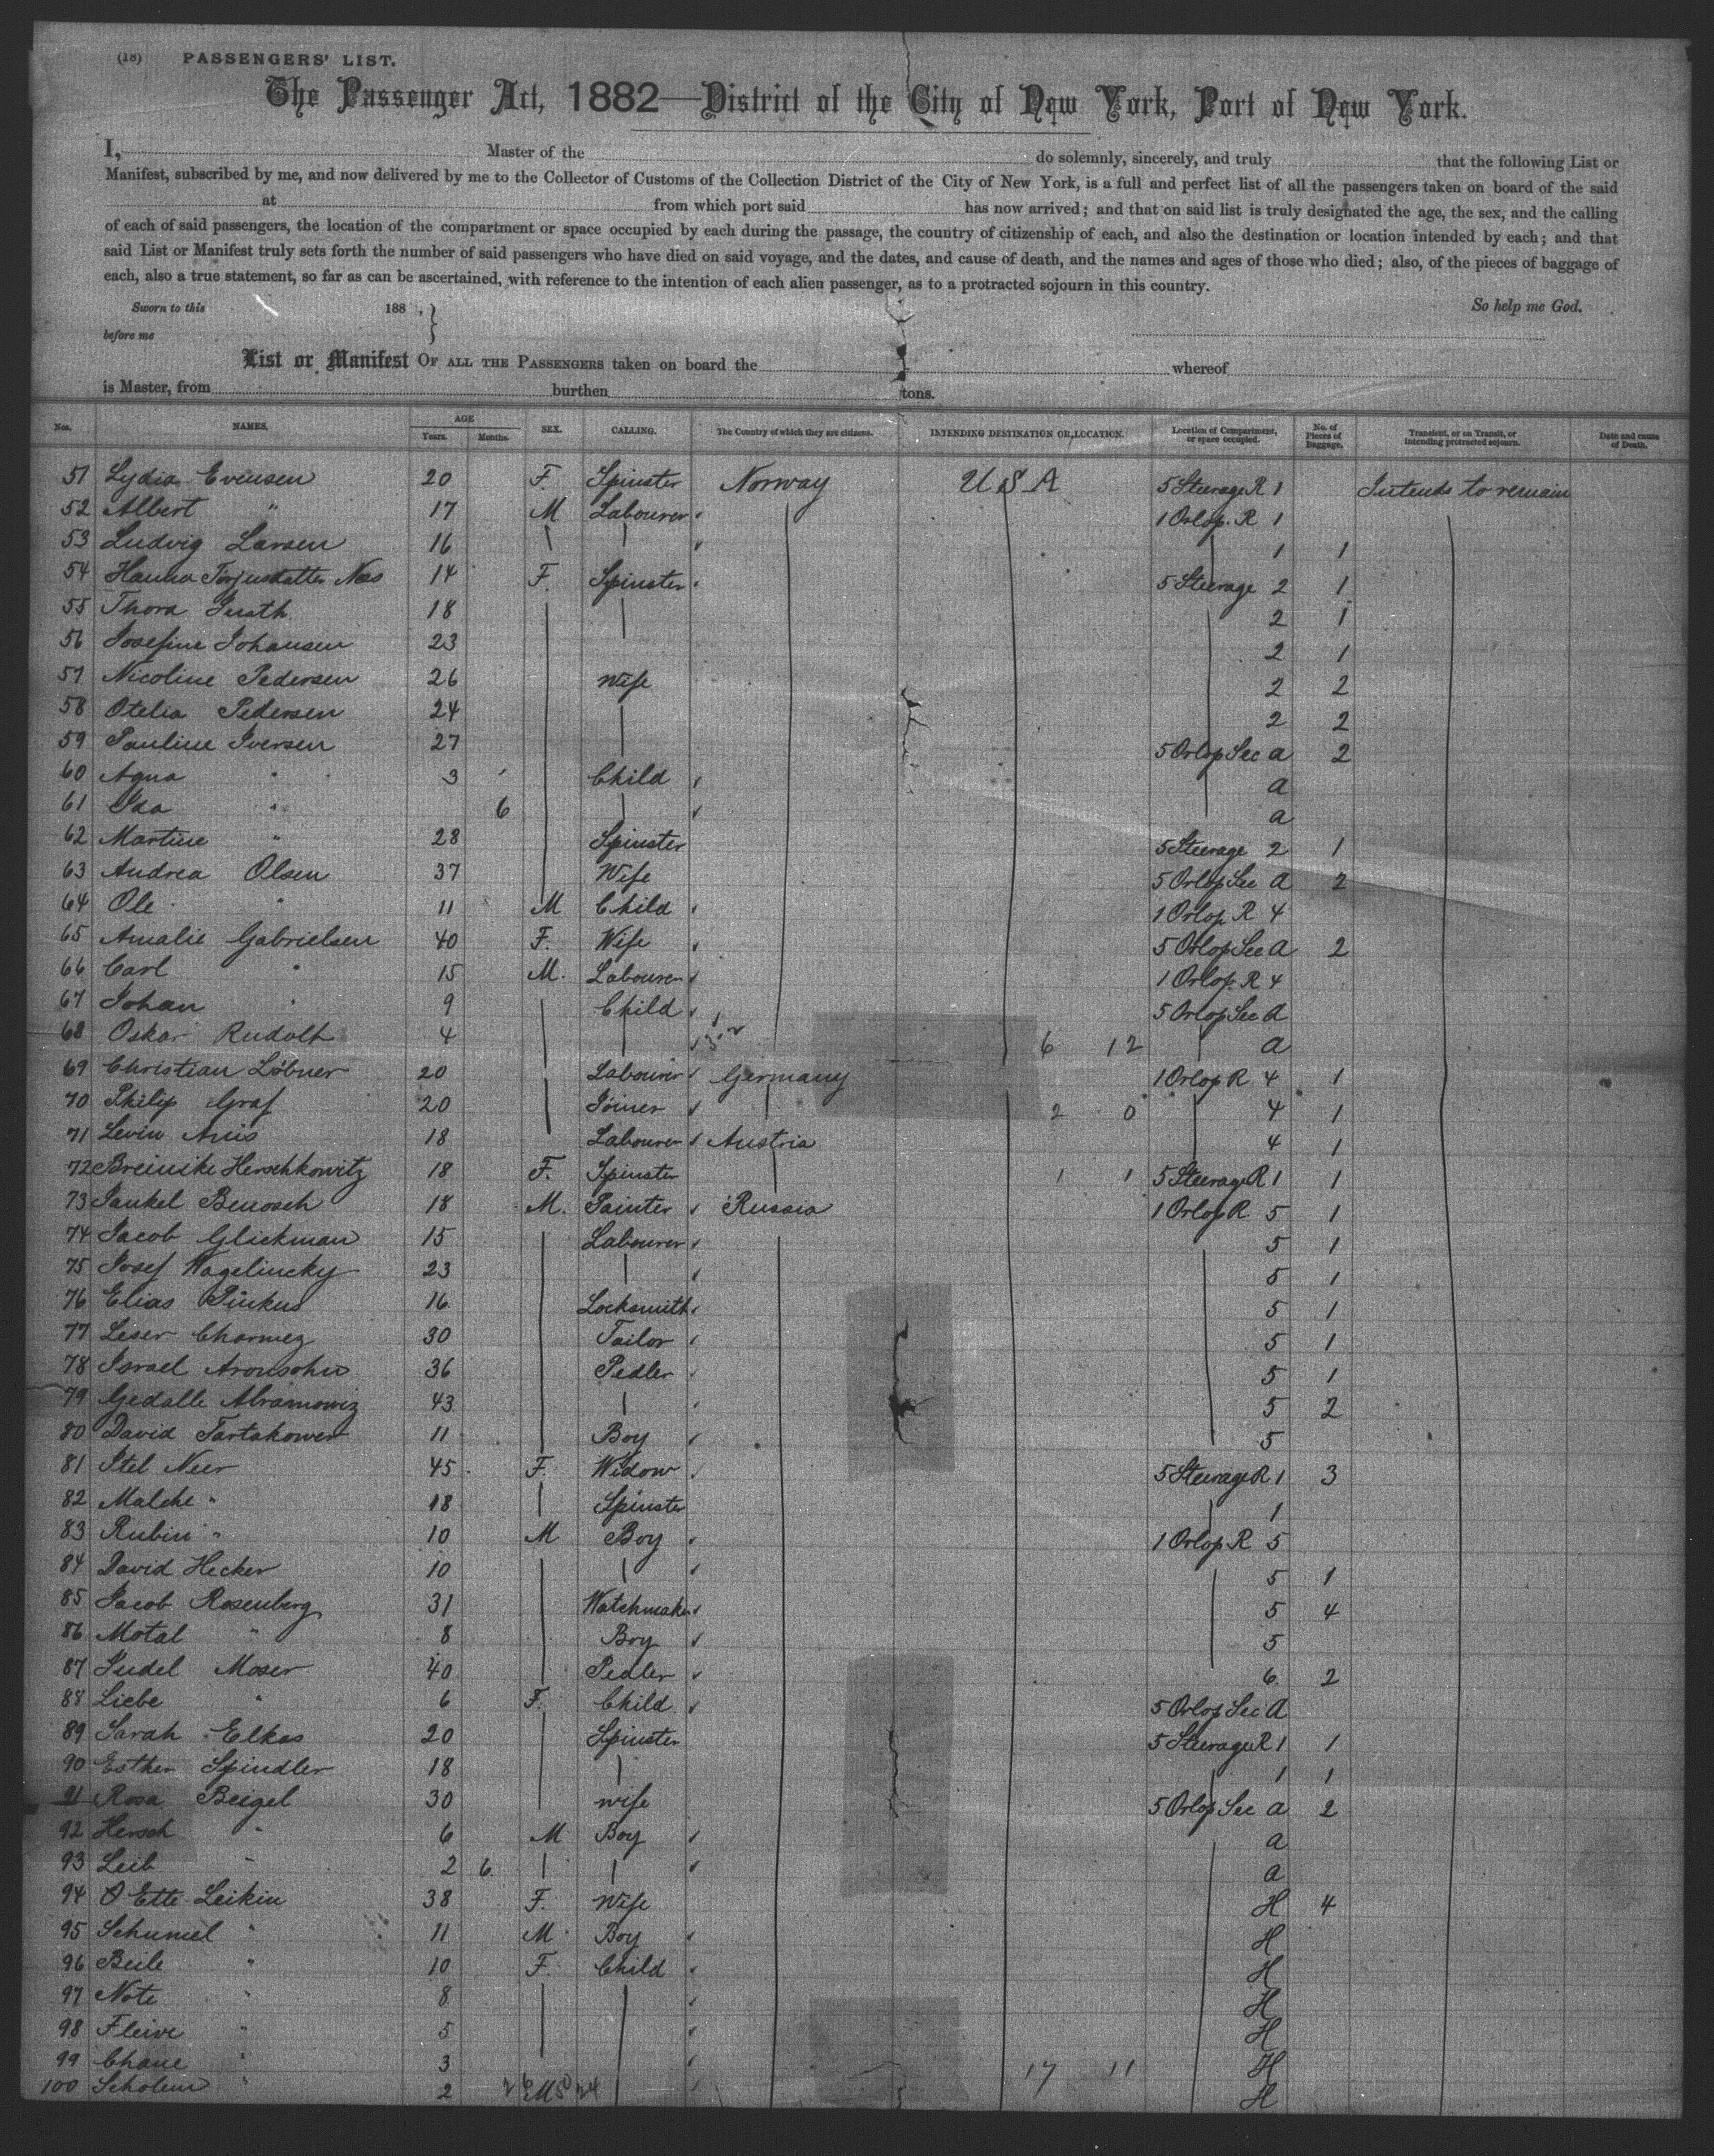 (18) PASSENGERS' LIST.
The Passenger Act, 1882—District of the City of New York, Port of New York.
I, Master of the do solemnly, sincerely, and truly that the following List or
Manifest, subscribed by me, and now delivered by me to the Collector of Customs of the Collection District of the City of New York, is a full and perfect list of all the passengers taken on board of the said
at from which port said has now arrived; and that on said list is truly designated the age, the sex, and the calling
of each of said passengers, the location of the compartment or space occupied by each during the passage, the country of citizenship of each, and also the destination or location intended by each; and that
said List or Manifest truly sets forth the number of said passengers who have died on said voyage, and the dates, and cause of death, and the names and ages of those who died; also, of the pieces of baggage of
each, also a true statement, so far as can be ascertained, with reference to the intention of each alien passenger, as to a protracted sojourn in this country.
Sworn to this 188 , So help me God.
before me
List or Manifest OF ALL THE PASSENGERS taken on board the whereof
is Master, from burthen tons.
Nos. NAMES. AGE Years. Months. SEX. CALLING. The Country of which they are citizens. INTENDING DESTINATION OR LOCATION. Location of Compartment, or space occupied. No. of Pieces of Baggage. Transient, or on Transit, or intending protracted sojourn. Date and cause of Death.
51 Lydia Evensen 20 F. Spinster Norway U S A 5 Steerage R 1 Intends to remain
52 Albert " 17 M Labourer 1 Orlop. R 1
53 Ludvig Larsen 16 1 1
54 Hanna Torjusdatter Nes 14 F. Spinster 5 Steerage 2 1
55 Thora 18 2 1
56 Josefine Johansen 23 2 1
57 Nicoline Pedersen 26 Wife 2 2
58 Otelia Pedersen 24 2 2
59 Pauline Iversen 27 5 Orlop Sec a 2
60 Agna " 3 Child a
61 Ida " 6 a
62 Martine " 28 Spinster 5 Steerage 2 1
63 Andrea Olsen 37 Wife 5 Orlop Sec A 2
64 Ole " 11 M Child 1 Orlop R 4
65 Amalie Gabrielsen 40 F. Wife 5 Orlop Sec A 2
66 Carl " 15 M. Labourer 1 Orlop R 4
67 Johan " 9 Child 5 Orlop Sec A
68 Oskar Rudolf 4 6 12 a
69 Christian Löbner 20 Labourer Germany 1 Orlop R 4 1
70 Philip Graf 20 Joiner 2 0 4 1
71 Levin Anis 18 Labourer Austria 4 1
72 Breinike Herschkowitz 18 F. Spinster 1 1 5 Steerage R 1 1
73 Jankel Benosch 18 M. Painter Russia 1 Orlop R. 5 1
74 Jacob Glickman 15 Labourer 5 1
75 Josef Wagelincky 23 5 1
76 Elias Pinkus 16 Locksmith 5 1
77 Leser Charmez 30 Tailor 5 1
78 Israel Aronsohn 36 Pedler 5 1
79 Gedalle Abramowiz 43 5 2
80 David Tartakower 11 Boy 5
81 Itel Neer 45 F. Widow 5 Steerage R 1 3
82 Malche " 18 Spinster 1
83 Rubin " 10 M Boy 1 Orlop R 5
84 David Hecker 10 5 1
85 Jacob Rosenberg 31 Watchmaker 5 4
86 Motal " 8 Boy 5
87 Judel Moser 40 Pedler 6. 2
88 Liebe " 6 F. Child 5 Orlop Sec A
89 Sarah Elkas 20 Spinster 5 Steerage R 1 1
90 Esther Spindler 18 1 1
91 Rosa Beigel 30 wife 5 Orlop Sec a 2
92 Hersch " 6 M Boy a
93 Leib " 2 6 a
94 Ette Leikin 38 F. Wife H 4
95 Schumel " 11 M Boy H
96 Beile " 10 F. Child H
97 Note " 8 H
98 Fleive " 5 H
99 Chane " 3 17 11 H
100 Scholem " 2 H